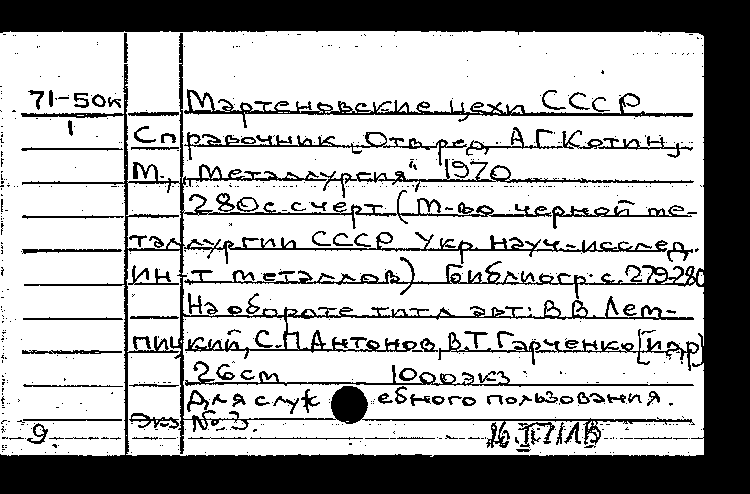 71-50к Мартеновские цехи СССР
1 Справочник. Отв. ред. А.Г. Котин,
М., „Металлургия“, 1970
280 с. с черт. (М-во черной ме-
таллургии СССР. Укр. науч.-исслед.
ин-т металлов) Библиогр.: с. 279-280
На обороте титл. авт.: В.В. Лем-
пицкий, С.П. Антонов, В.Т. Гарченко [и др]
26 см 1000 экз
Для служебного пользования.
Экз № 3.
9.